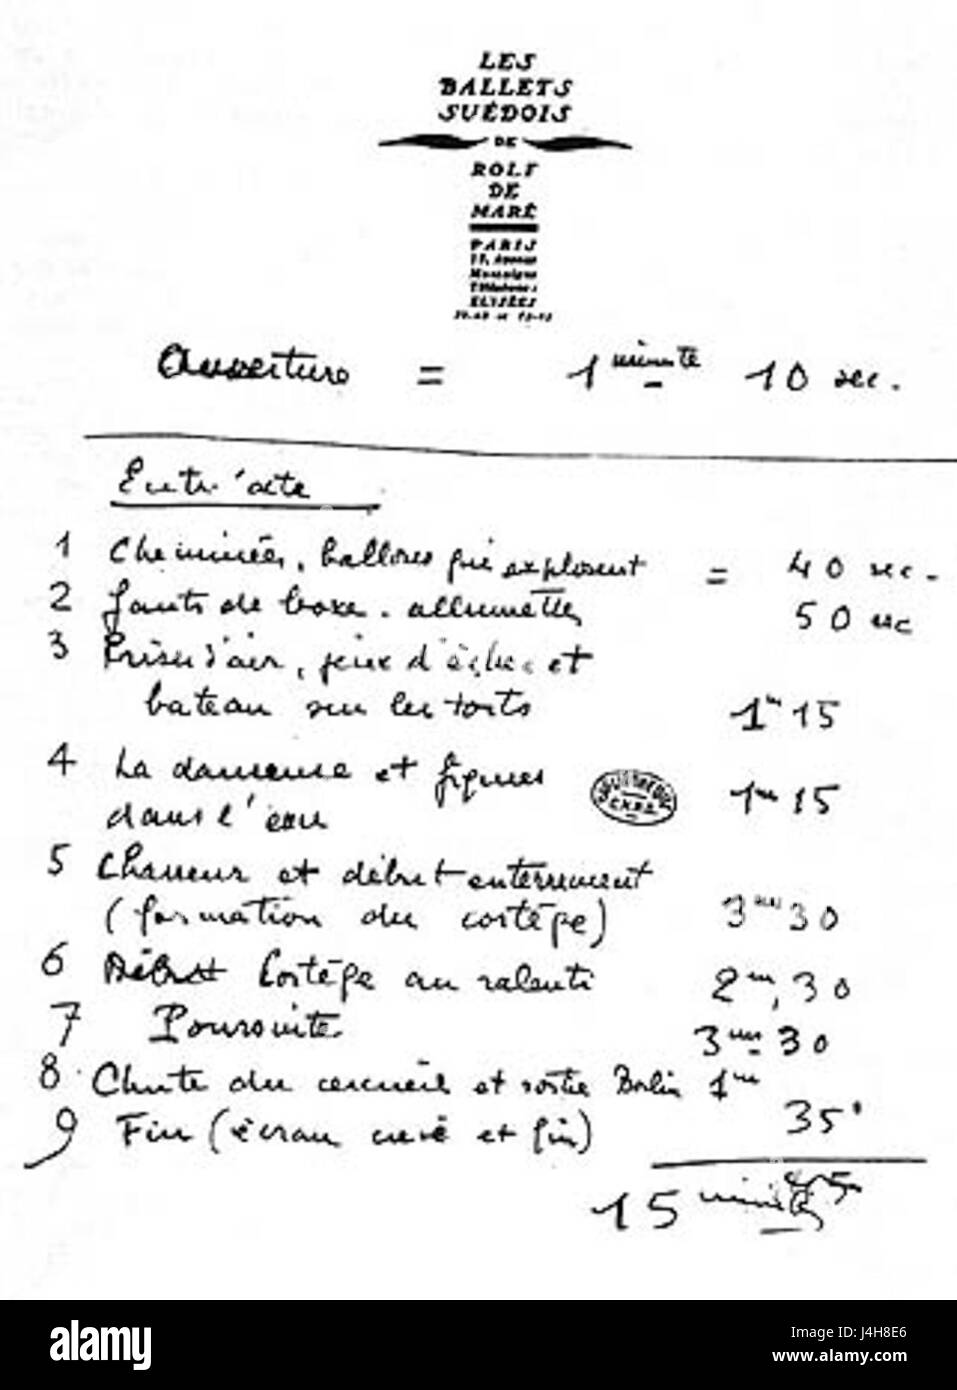 LES
BALLETS
SUÉDOIS
DE
ROLF
DE
MARÉ
PARIS
ELYSÉES
Ouverture = 1 minute 10 sec.
Entr'acte
1 Cheminées, ballons qui explosent = 40 sec.
2 gants de boxe. allumettes 50 sec
3 Prises d'air, jeux d'échec et
bateau sur les toits 1 m 15
4 La danseuse et figures
dans l'eau 1 mn 15
5 Chasseur et début enterrement
(formation du cortège) 3 mn 30
6 Début Cortège au ralenti 2 mn, 30
7 Poursuite 3 mn 30
8 Chute du cercueil et sortie Borlin 1 mn
9 Fin (écran crevé et fin) 35"
15 minutes
alamy
Image ID: J4H8E6
www.alamy.com